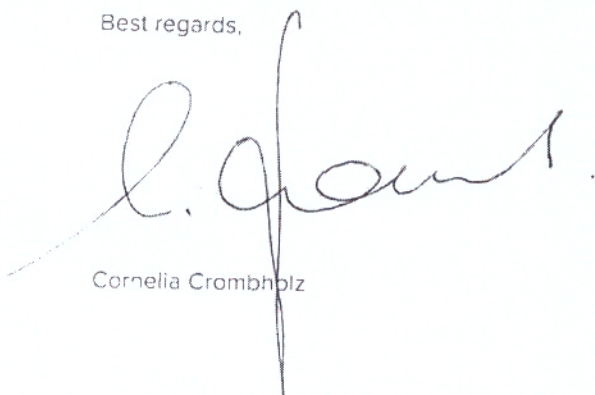 Best regards,
Cornelia Crombholz